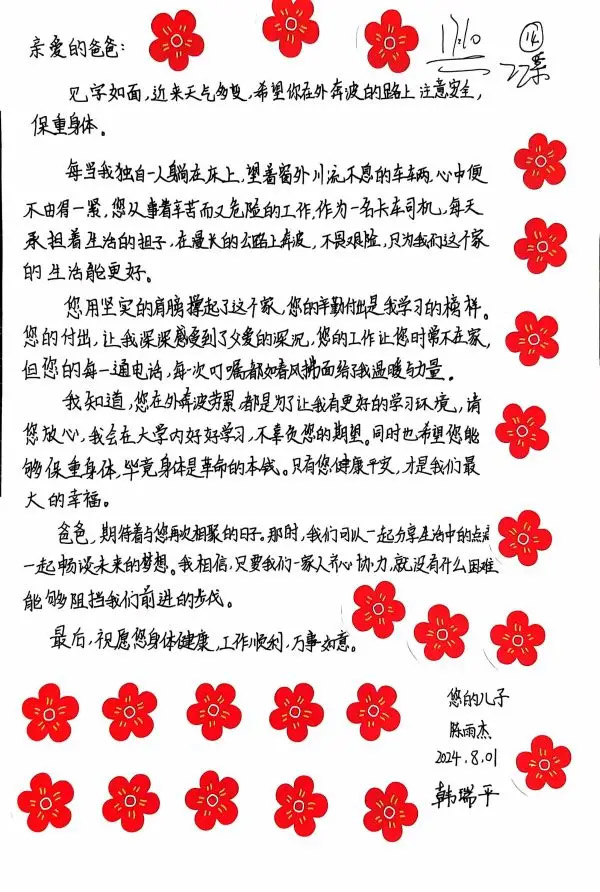 17:10
14
亲爱的爸爸：
见字如面，近来天气多变，希望你在外奔波的路上注意安全，
保重身体。
每当我独自一人躺在床上，望着窗外川流不息的车车两，心中便
不由得一紧，您从事着辛苦而又危险的工作，作为一名卡车司机，每天
承担着生活的担子，在漫长的公路上奔波，不畏艰险，只为我们这个家
的生活能更好。
您用坚实的肩膀撑起了这个家，您的辛勤付出是我学习的榜样。
您的付出，让我深深感受到了父爱的深沉，您的工作让您时常不在家，
但您的每一通电话，每次叮嘱都如春风拂面给了我温暖与力量。
我知道，您在外奔波劳累都是为了让我有更好的学习环境，请
您放心，我会在大学内好好学习，不辜负您的期望。同时也希望您能
够保重身体，毕竟身体是革命的本钱。只有您健康平安，才是我们最
大的幸福。
爸爸，期待着与您再次相聚的日子。那时，我们可以一起分享生活中的点滴
一起畅谈未来的梦想。我相信，只要我们一家人齐心协力，就没有什么困难
能够阻挡我们前进的步伐。
最后，祝愿您身体健康，工作顺利，万事如意。
您的儿子
陈雨杰
2024.8.01
韩瑞平